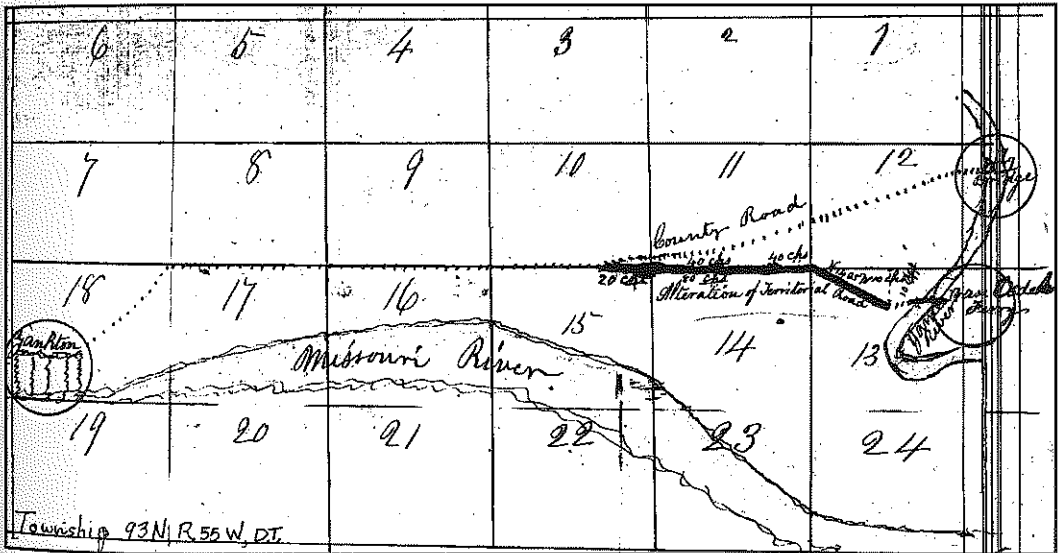 6 5 4 3 2 1
7 8 9 10 11 12
Bridge
County Road
40 chs 40 chs
20 chs 80 chs
Alteration of Territorial Road
18 17 16 15 14 13
Van Osdels
Ferry
River
Yankton
Missouri River
19 20 21 22 23 24
Township 93N R 55 W, DT.